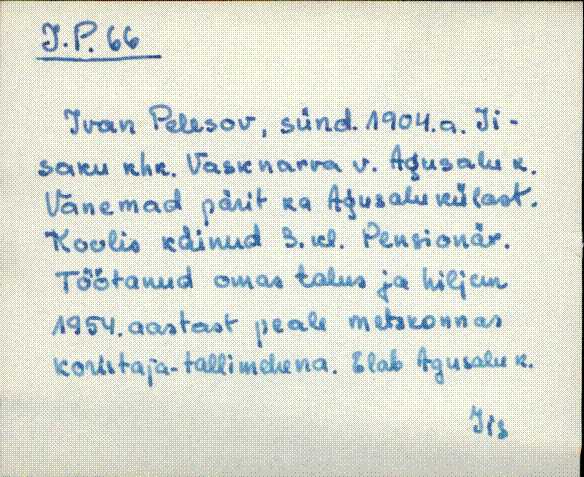 J.P. 66
Ivan Pelesov, sünd. 1904.a. Ii-
saku khk. Vasknarva v. Agusalu k.
Vanemad pärit ka Agusalu külast.
Koolis käinud 3. kl. Pensionär.
Töötanud omas talus ja hiljem
1954. aastast peale metskonnas
koristaja-tallimehena. Elab Agusalu k.
Iis